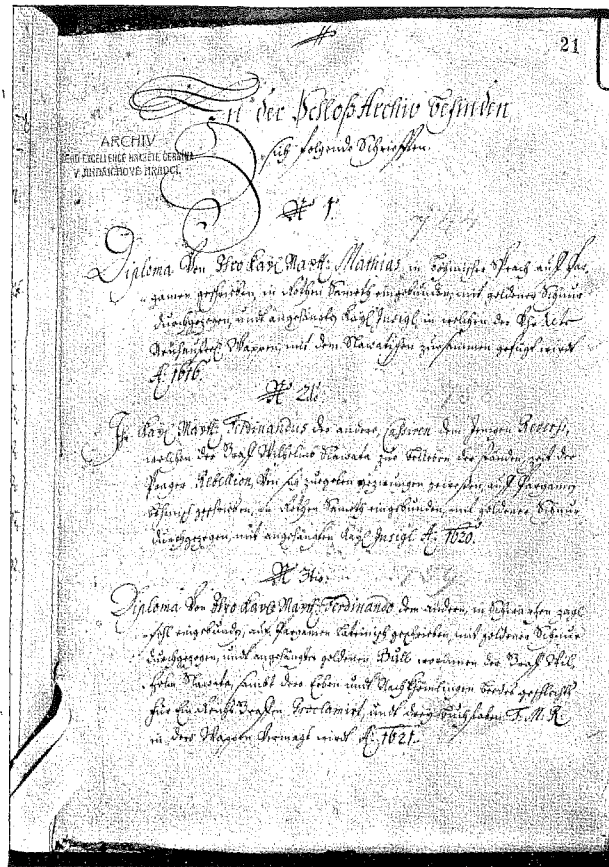 21
In der Schloß Archiv befinden
sich folgende Schrifften.
ARCHIV
JEHO EXCELLENCE HRABĚTE ČERNÍNA
V JINDŘICHOVĚ HRADCI.
N 1.
Diploma Von Ihro Kayl: Maytt: Mathias, in böhmischer Sprach auf Par-
gamen geschrieben, in Rothen Sameth eingebunden, mit goldener Schnur
durchgezogen, undt angehängten Kayl: Insigl, in welchen der
Neuhauserl: Wappen, mit dem Slawatischen zusammen gefügt wirdt
A: 1616.
N 2do:
Ihr Kayl: Maytt: Ferdinandus der andere, Cassiren dem Jenigen Revers,
welchen der Graff Wilhelmb Slawata zu der Ständen, Zeit der
Prager Rebellion, Von sich zugeben gezwungen geweßen, auf Pargamen
böhmisch geschrieben, in Rothen Sameth eingebunden, mit goldener Schnur
durchgezogen, mit angehängten Kayl: Insigl A: 1620.
N 3tio:
Diploma Von Ihro Kayl: Maytt: Ferdinando dem andern, in Schwartzen
eingebunden, auf Pargamen Lateinisch geschrieben, mit goldener Schnur
durchgezogen, undt angehängter goldenen Bull worinnen der Graff Wil-
helm Slawata, sambt dero Erben undt Nachkhömlingen beedes geschlechts
für Ein Reichs Graffen Proclamirt, undt drey buchstaben F. M. R.
in dero Wappen Vermehrt wirdt A: 1621.